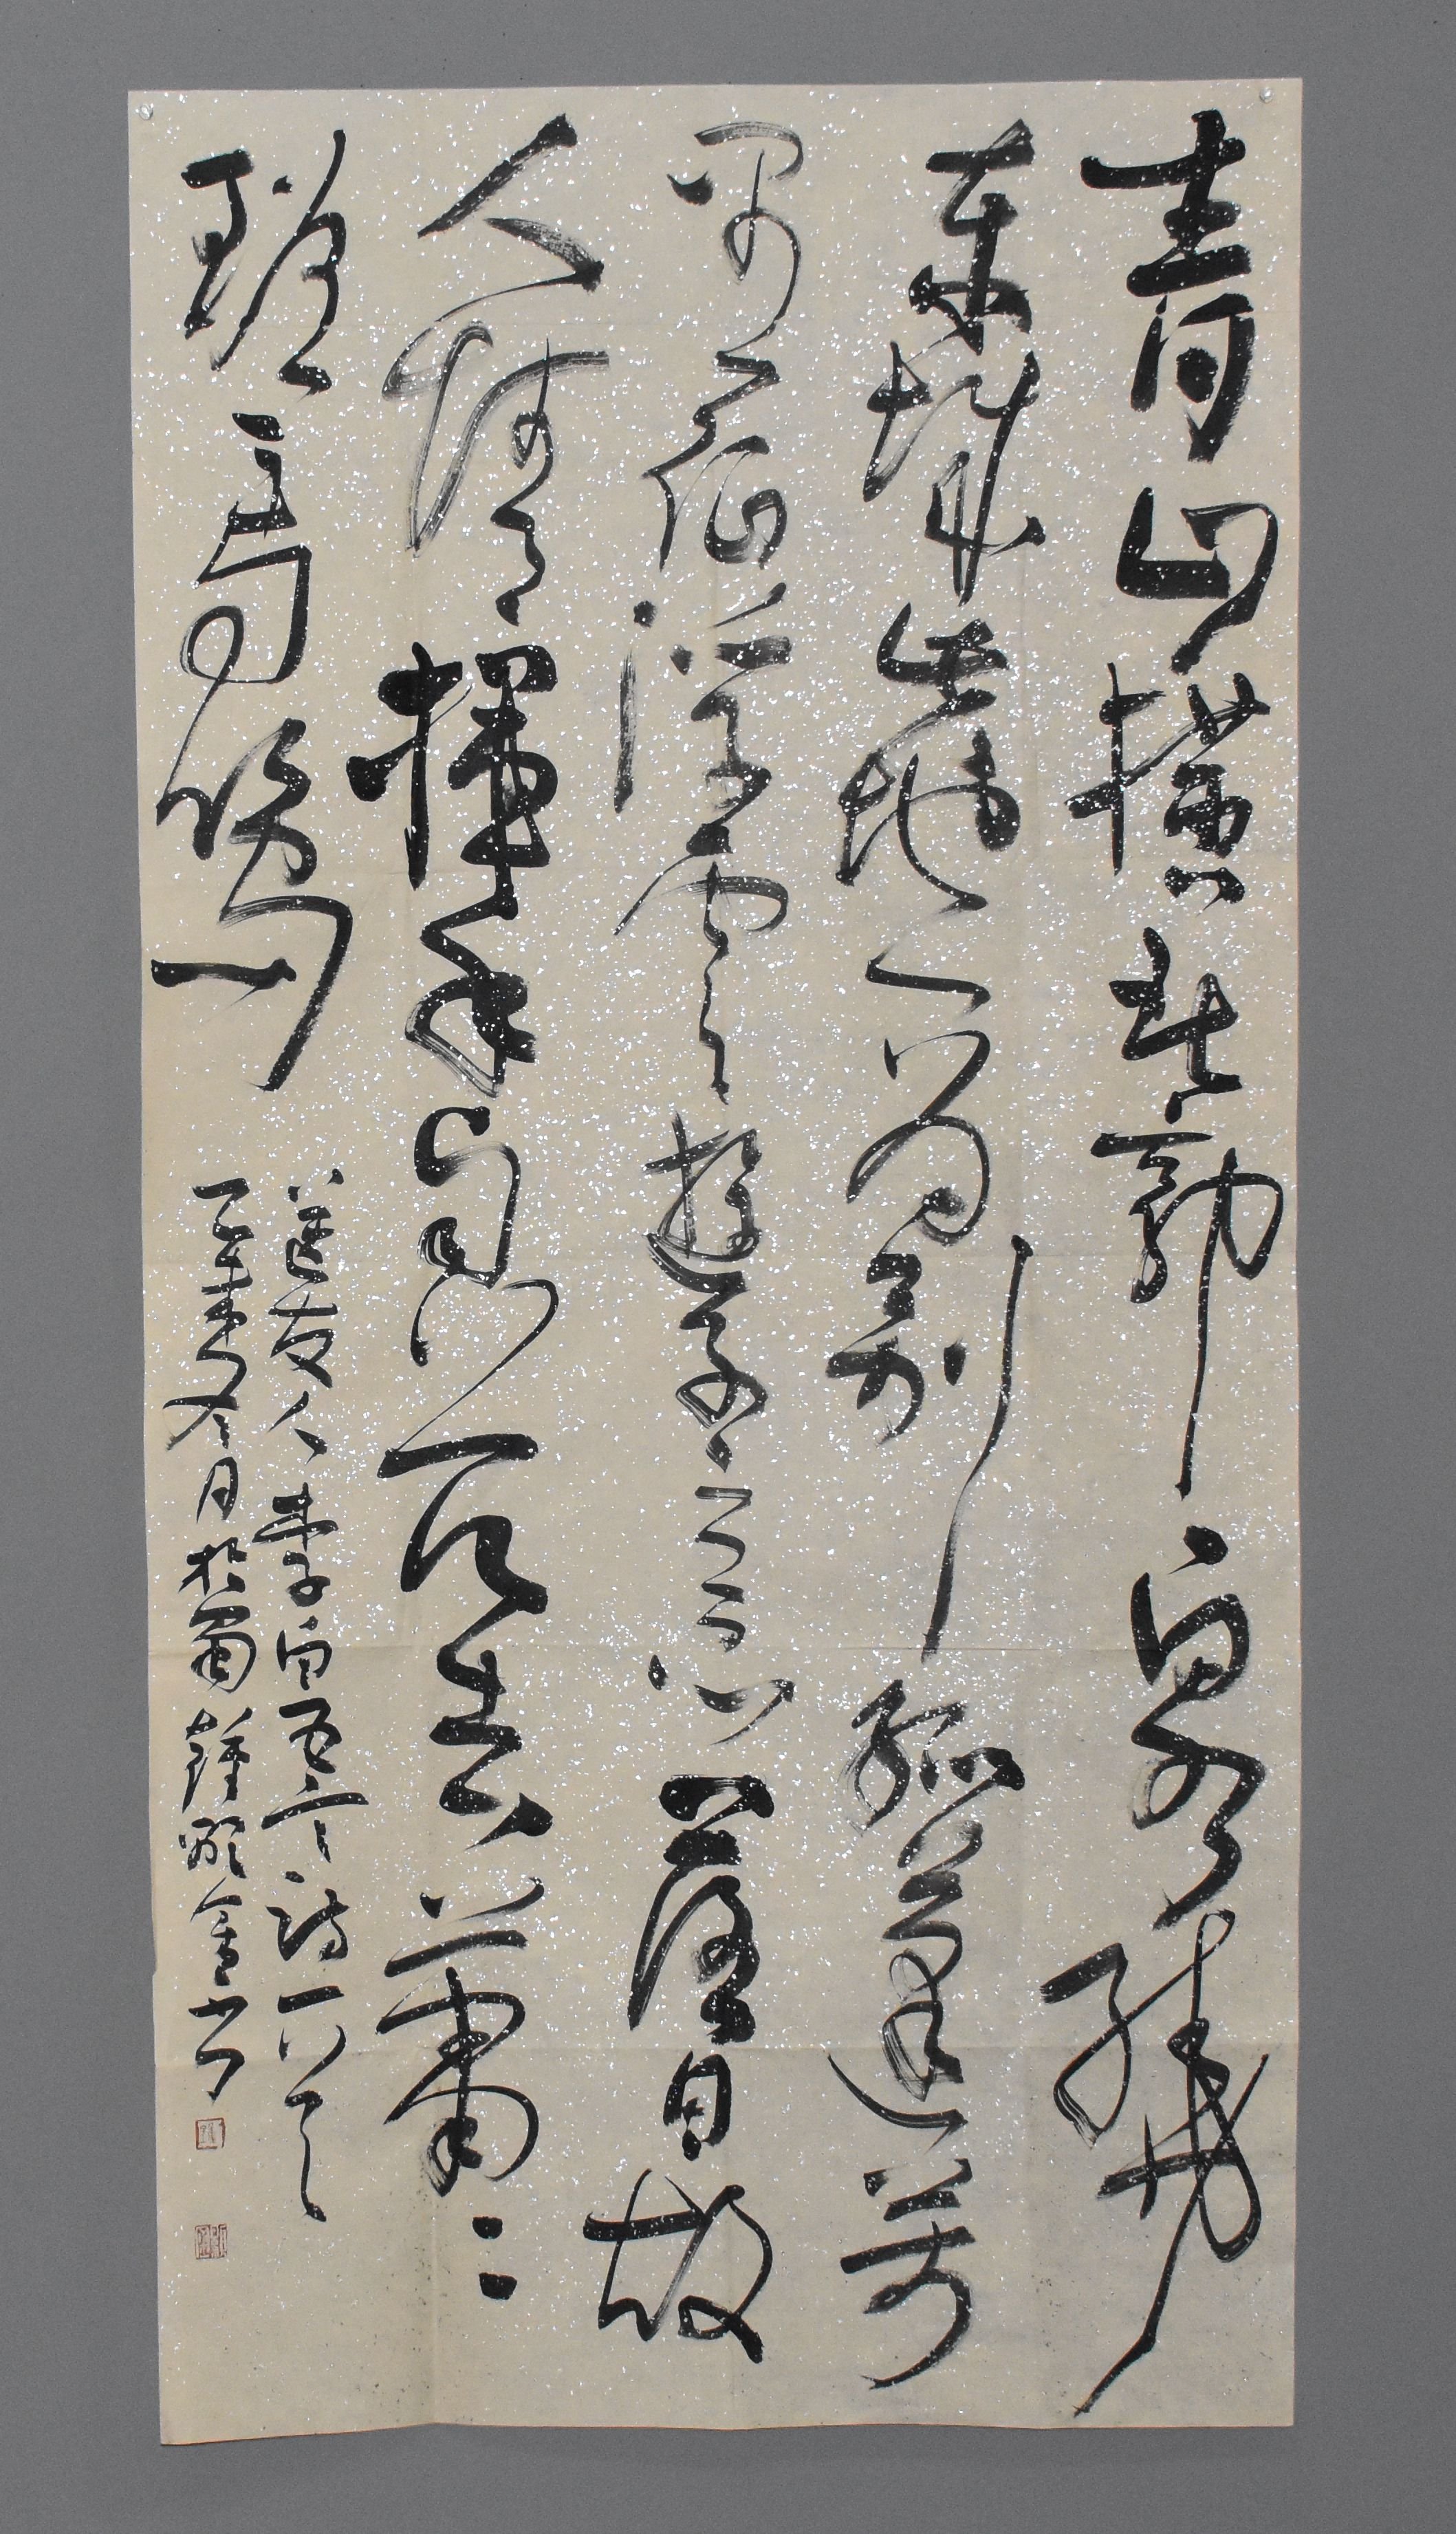 青山橫北郭白水繞
東城此地一為別孤蓬萬
里征浮雲遊子意落日故
人情揮手自茲去蕭々
班馬鳴
送友人李白五言詩一首
冬月於蜀